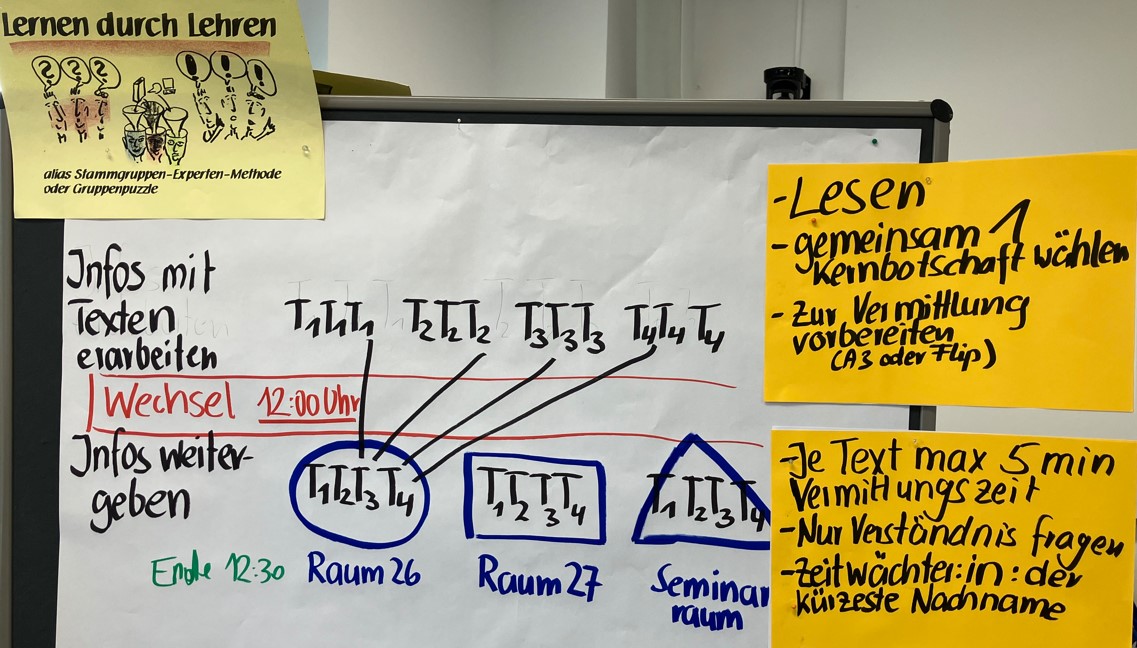 Lernen durch Lehren
? ? ? ! ! !
alias Stammgruppen-Experten-Methode
oder Gruppenpuzzle
Infos mit
Texten
erarbeiten
T1 T1 T1 T2 T2 T2 T3 T3 T3 T4 T4 T4
Wechsel 12:00 Uhr
Infos weiter-
geben
T1 T2 T3 T4
T1 T2 T3 T4
T1 T2 T3 T4
Ende 12:30
Raum 26
Raum 27
Seminar
raum
- Lesen
- gemeinsam 1
Kernbotschaft wählen
- Zur Vermittlung
vorbereiten
(A3 oder Flip)
- Je Text max 5 min
Vermittlungszeit
- Nur Verständnis fragen
- Zeitwächter:in: der
kürzeste Nachname